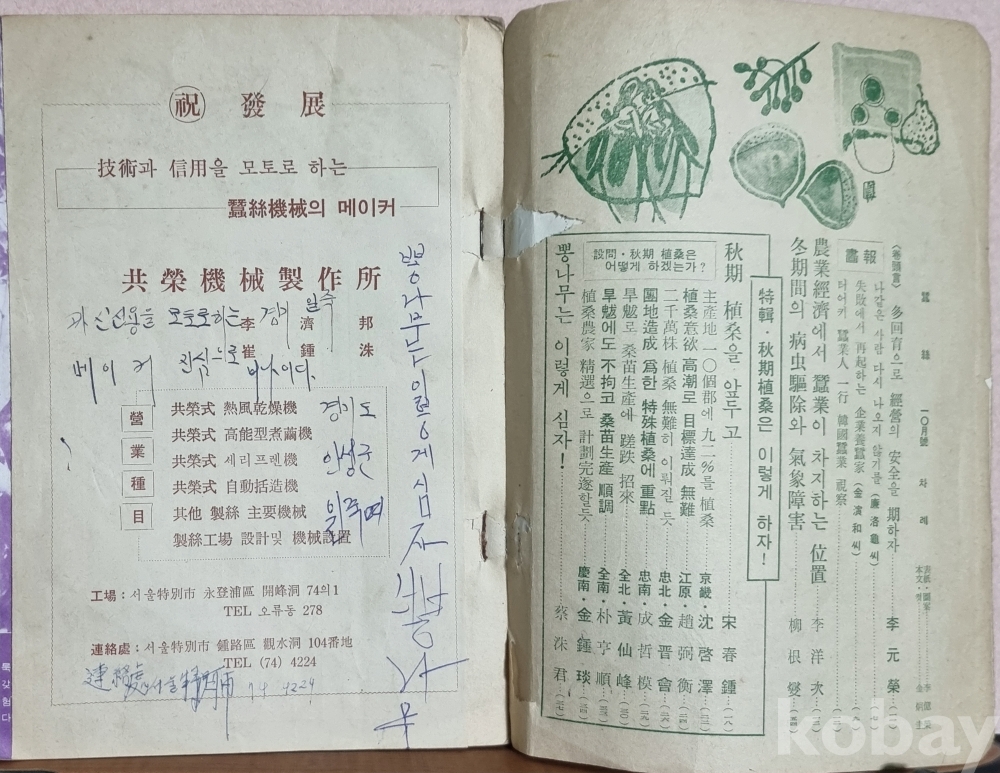 祝 發展
技術과 信用을 모토로 하는
蠶絲機械의 메이커
共榮機械製作所
李濟邦
崔鍾洙
과 신신용을 모토로하는 경기
메이커 진심으로
營業種目
共榮式 熱風乾燥機
共榮式 高能型煮繭機
共榮式 세리프렌機
共榮式 自動括造機
其他 製絲 主要機械
製絲工場 設計및 機械設置
경기도
안성군
뽕나무는 이렇게 심자
工場: 서울特別市 永登浦區 開峰洞 74의1
TEL 오류동 278
連絡處: 서울特別市 鍾路區 觀水洞 104番地
TEL (74) 4224
連絡處 서울特
74 4224
蠶絲 一〇月號 차례
《卷頭言》 多回育으로 經營의 安全을 期하자 李元榮
畵報
나같은 사람 다시 나오지 않기를 (廉洛龜씨)
失敗에서 再起하는 企業養蠶家 (金濱和씨)
더어키 蠶業人 一行 韓國蠶業 視察
農業經濟에서 蠶業이 차지하는 位置 李洋次
冬期間의 病虫驅除와 氣象障害 柳根燮
特輯・秋期植桑은 이렇게 하자!
秋期 植桑을 앞두고 宋春鍾
設問・秋期 植桑은 어떻게 하겠는가?
主產地 一〇個郡에 九二%를 植桑 京畿・沈啓澤
植桑意欲 高潮로 目標達成 無難 江原・趙弼衡
二千萬株 植桑 無難히 이뤄질 듯 忠北・金晋會
團地造成 爲한 特殊植桑에 重點 忠南・成哲模
旱魃로 桑苗生產에 蹉跌 招來 全北・黃仙峰
旱魃에도 不拘코 桑苗生產 順調 全南・朴亨順
植桑農家 精選으로 計劃完遂할듯 慶南・金鍾琰
뽕나무는 이렇게 심자! 蔡洙君
kobay